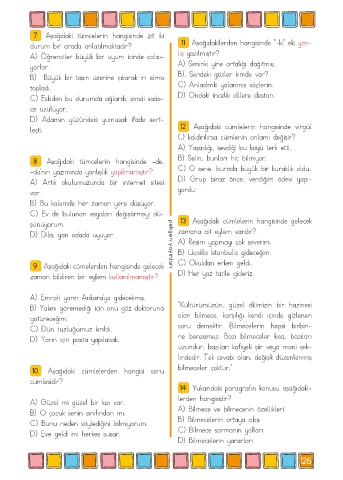 7 Aşağıdaki tümcelerin hangisinde zıt iki
durum bir arada anlatılmaktadır?
A) Öğrenciler büyük bir uyum içinde çalışı-
yorlar.
B) Büyük bir taşın üzerine çıkarak iri elma
topladı.
C) Eskiden bu durumda ağlardı, şimdi sade-
ce üzülüyor.
D) Adamın yüzündeki yumuşak ifade sert-
leşti.
8 Aşağıdaki tümcelerin hangisinde -de,
-da'nın yazımında yanlışlık yapılmamıştır?
A) Artık okulumuzunda bir internet sitesi
var.
B) Bu kalemde her zaman yere düşüyor.
C) Ev de bulunan eşyaları değiştirmeyi dü-
şünüyorum.
D) Dila, yan odada uyuyor.
9 Aşağıdaki cümlelerden hangisinde gelecek
zaman bildiren bir eylem kullanılmamıştır?
A) Emrah yarın Ankara'ya gidecekmiş.
B) Yakını göremediği için onu göz doktoruna
götüreceğim.
C) Dün tuzluğumuz kırıldı.
D) Yarın için pasta yapılacak.
10 Aşağıdaki cümlelerden hangisi soru
cümlesidir?
A) Güzel mi güzel bir kızı var.
B) O çocuk senin sınıfından mı.
C) Bunu neden söylediğini bilmiyorum.
D) Eve geldi mi herkes susar.
11 Aşağıdakilerden hangisinde "-ki" eki yan-
lış yazılmıştır?
A) Seninki yine ortalığı dağıtmış.
B) Sendeki gözler kimde var?
C) Anladımki yalanmış sözlerin.
D) Ondaki incelik dillere destan.
12 Aşağıdaki cümlelerin hangisinde virgül
(,) kaldırılırsa cümlenin anlamı değişir?
A) Yaşadığı, sevdiği bu köyü terk etti.
B) Selin, bunları hiç bilmiyor.
C) O sene, burada büyük bir kuraklık oldu.
D) Grup biraz önce, verdiğim ödevi yapı-
yordu.
13 Aşağıdaki cümlelerin hangisinde gelecek
zamana ait eylem vardır?
A) Resim yapmayı çok severim.
B) Uçakla İstanbul'a gideceğim.
C) Okuldan erken geldi.
D) Her yaz tatile gideriz.
"Kültürümüzün, güzel dilimizin bir hazinesi
olan bilmece, karşılığı kendi içinde gizlenen
soru demektir. Bilmecelerin hepsi birbiri-
ne benzemez. Bazı bilmeceler kısa, bazıları
uzundur, bazıları kafiyeli şiir veya mani şek-
lindedir. Tek cevabı olan, değişik düzenlenmiş
bilmeceler çoktur."
14 Yukarıdaki paragrafın konusu aşağıdaki-
lerden hangisidir?
A) Bilmece ve bilmecenin özellikleri
B) Bilmecelerin ortaya çıkışı
C) Bilmece sormanın yolları
D) Bilmecelerin yararları
126